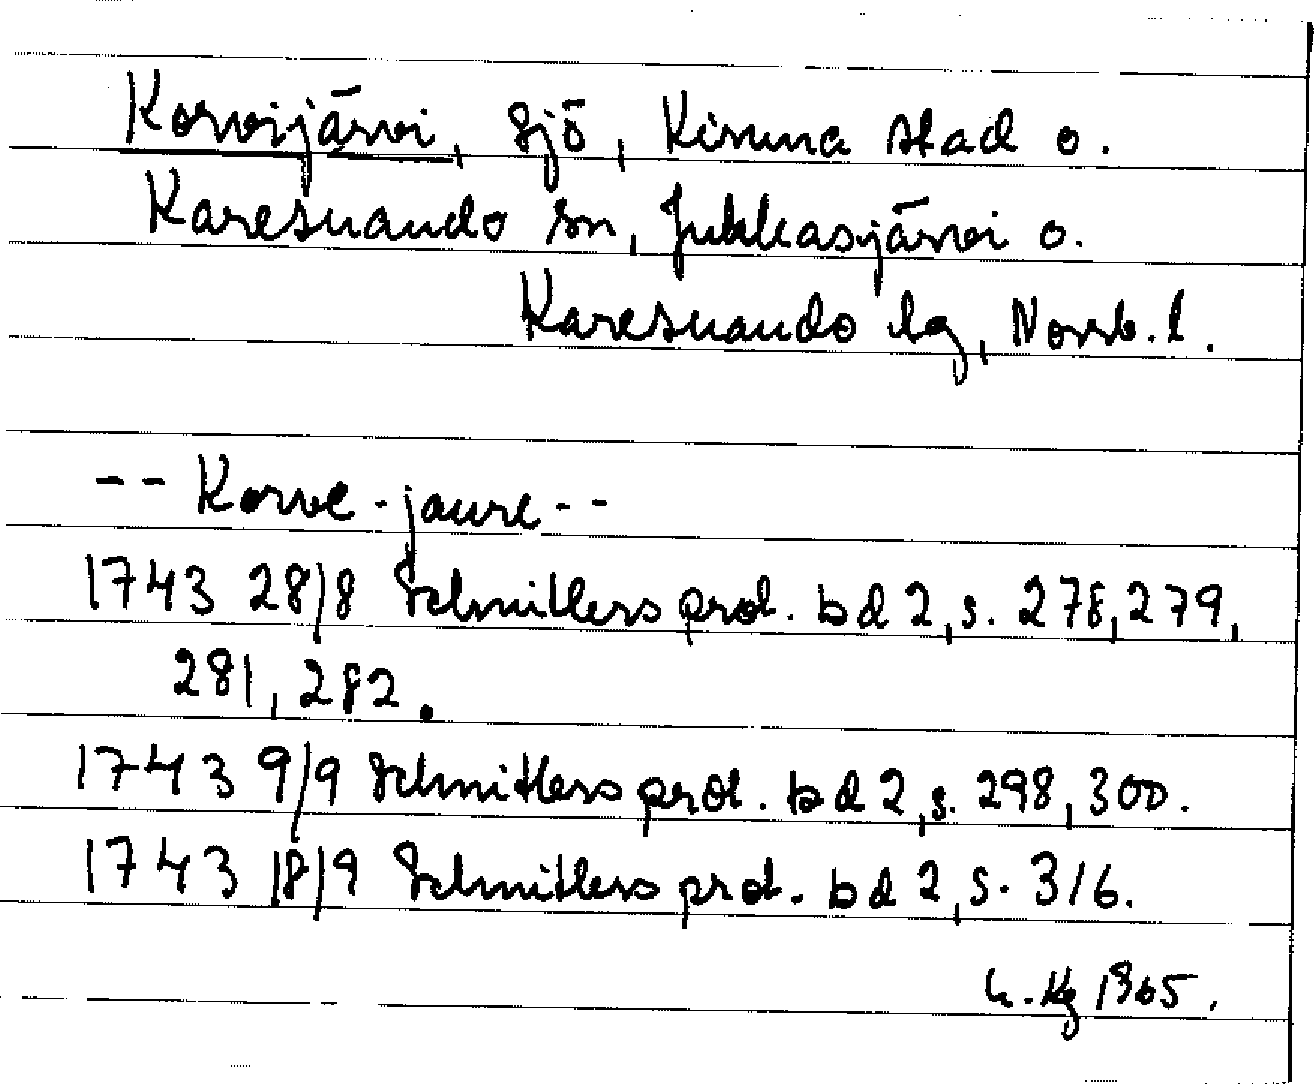 Korvijärvi, sjö, Kiruna stad o.
Karesuando sn, Jukkasjärvi o.
Karesuando lg, Norrb. l.
-- Korve-jaure--
1743 28/8 Schnitlers prot. bd 2, s. 278, 279,
281, 282.
1743 9/9 Schnitlers prot. bd 2, s. 298, 300.
1743 18/9 Schnitlers prot. bd 2, s. 316.
1965.